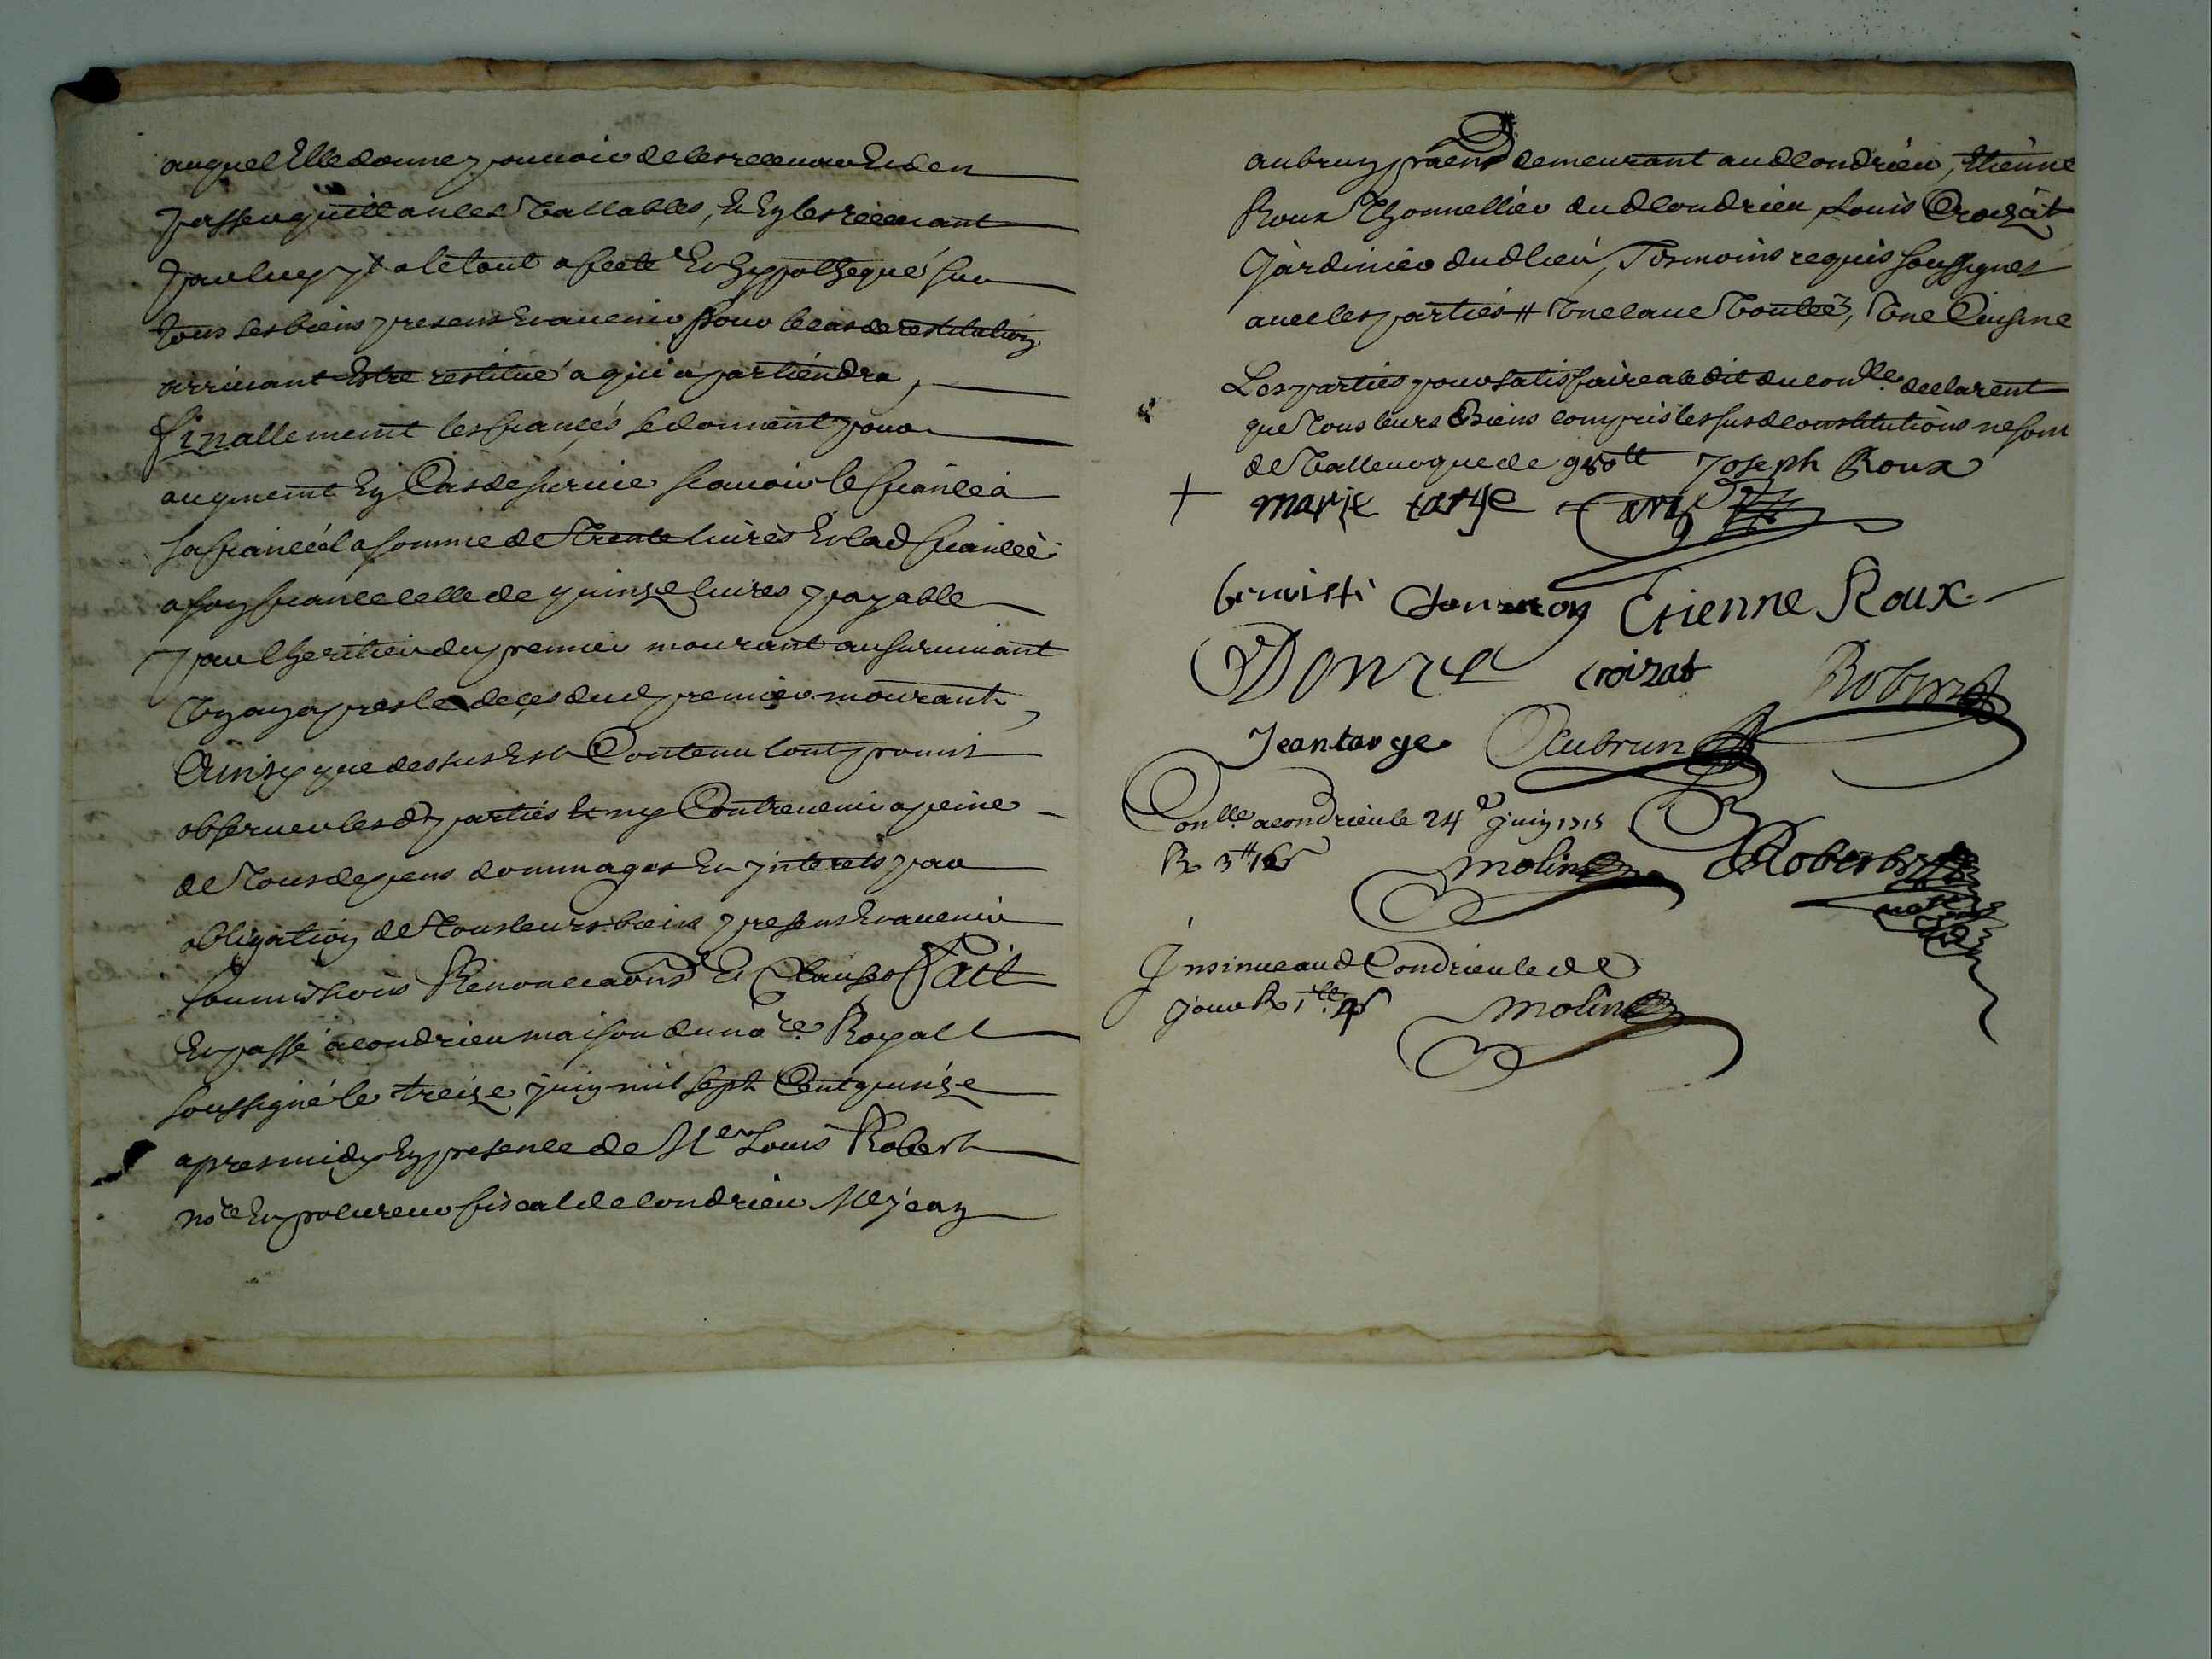 auquel Elle donne pouvoir de les recevoir Et den
passer quittances Vallables, Et En les recevant
par luy Jl a le tout afecté Et hyppothequé sur
tous ses biens presens Et avenir pour le cas de restitution
arrivant Estre restitué a qui apartiendra,
finallement les fiancés se donnent pour
augment En Cas de survie scavoir le fiancé a
sa fiancée la somme de Trente livres Et lad fiancée
a son fiancé celle de quinze livres payable
par lheritier du premier mourant au survivant
Un an apres le deces dud premier mourant,
Ainsy que dessus Est Contenu lont promis
observer lesd parties Et ny Contrevenir a peine
de Tous depens dommages Et Jnterets par
obligation de Tous leurs biens presens Et avenir
soumissions Renonciations Et Clauses Fait
Et passé a condrieu maison du nore Royall
soussigné le treize juin mil sept Cent quinze
apres midy En presence de Me Louis Robert
nore Et procureur fiscal de Condrieu Me jean
aubrun demeurant aud Condrieu, Etienne
Roux Thonnellier dud Condrieu Louis Croizat
Jardinier dud lieu, Tesmoins requis soussignes
avec les parties # Une cave Voutée, Une Cuisine
Les parties pour satisfaire a ledit du conlle declarent
que Tous leurs Biens compris les susd constitutions ne sont
de Valleur que de 980lt Joseph Roux
+ marie targe
Etienne Roux
Donze croizat Robert
Jean targe Aubrun
Conllé a condrieu le 24e juin 1715
R 3lt
molin Robert
Jnsinué aud Condrieu led
jour R 1lt
molin